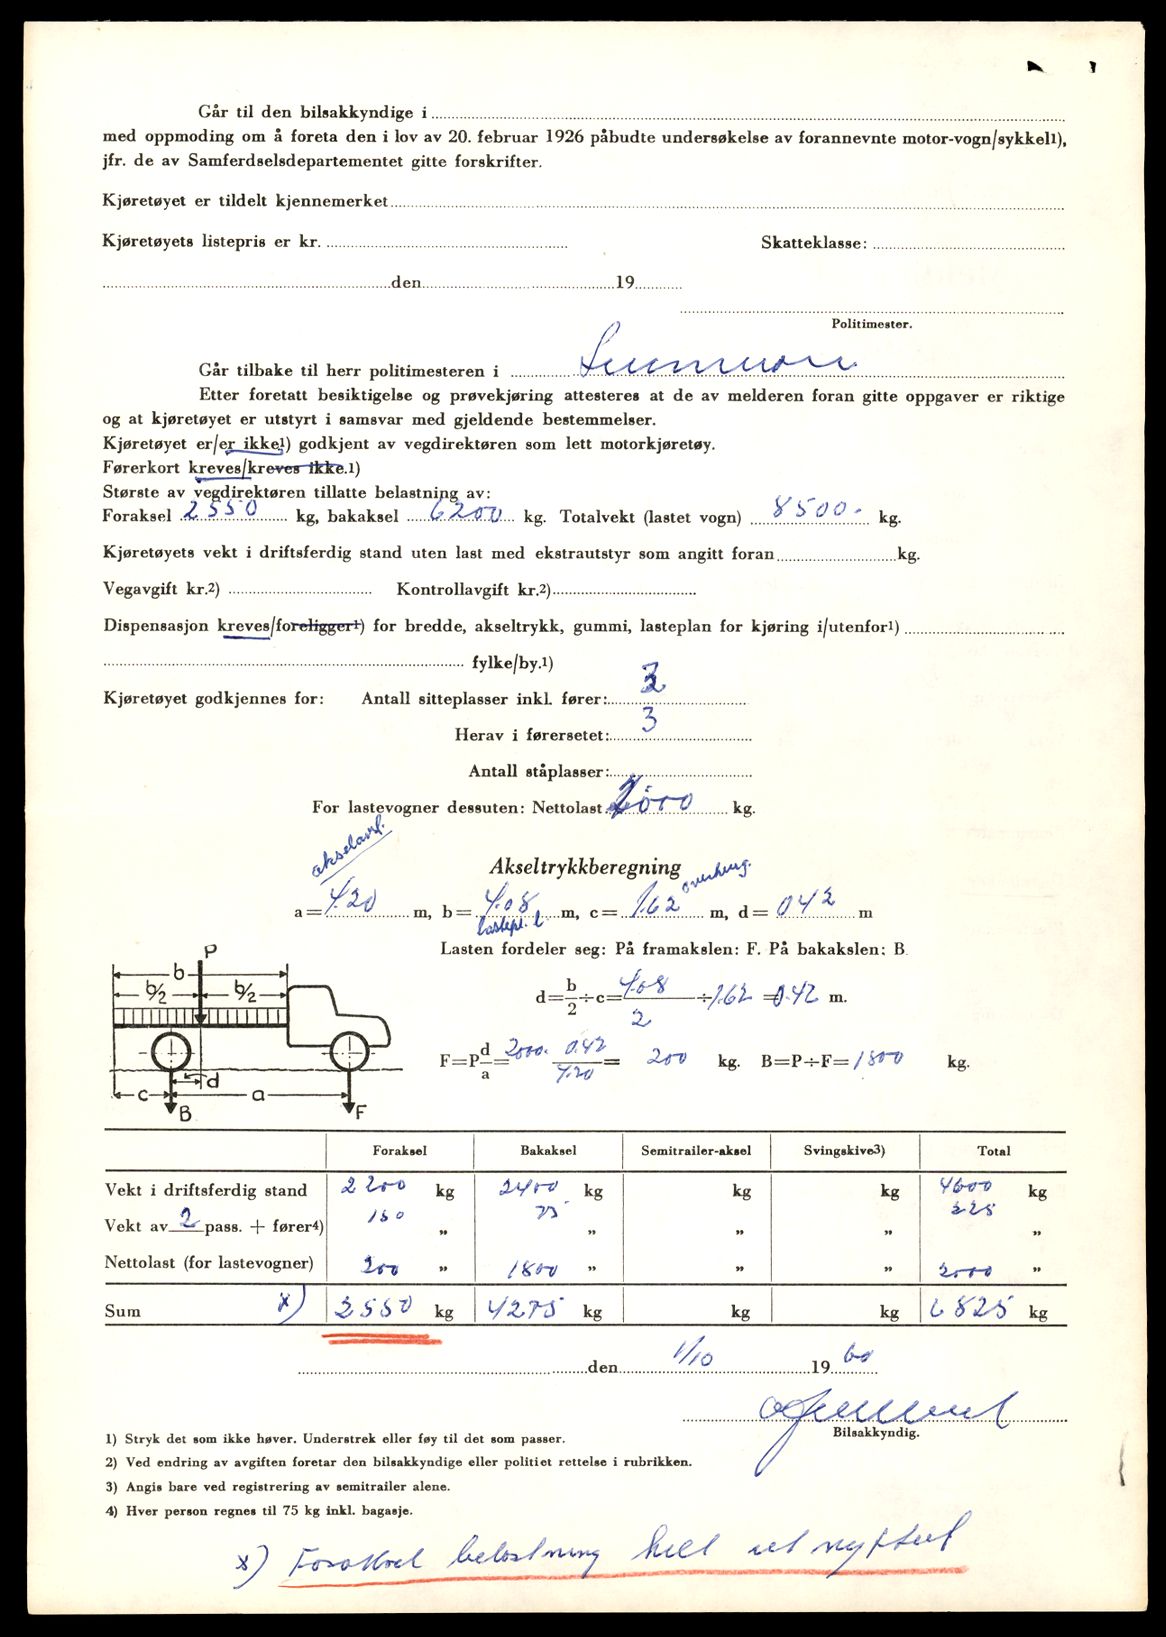 Går til den bilsakkyndige i
med oppmoding om å foreta den i lov av 20. februar 1926 påbudte undersøkelse av forannevnte motor-vogn/sykkel1),
jfr. de av Samferdselsdepartementet gitte forskrifter.
Kjøretøyet er tildelt kjennemerket
Kjøretøyets listepris er kr. Skatteklasse:
den 19
Politimester.
Går tilbake til herr politimesteren i
Etter foretatt besiktigelse og prøvekjøring attesteres at de av melderen foran gitte oppgaver er riktige
og at kjøretøyet er utstyrt i samsvar med gjeldende bestemmelser.
Kjøretøyet er/er ikke1) godkjent av vegdirektøren som lett motorkjøretøy.
Førerkort kreves/kreves ikke.1)
Største av vegdirektøren tillatte belastning av:
Foraksel 2550 kg, bakaksel 6200 kg. Totalvekt (lastet vogn) 8500.- kg.
Kjøretøyets vekt i driftsferdig stand uten last med ekstrautstyr som angitt foran kg.
Vegavgift kr.2) Kontrollavgift kr.2)
Dispensasjon kreves/foreligger1) for bredde, akseltrykk, gummi, lasteplan for kjøring i/utenfor1)
fylke/by.1)
Kjøretøyet godkjennes for: Antall sitteplasser inkl. fører: 3
Herav i førersetet: 3
Antall ståplasser:
For lastevogner dessuten: Nettolast 2000 kg.
akselavst.
Akseltrykkberegning
overheng.
a = 4.20 m, b = 4.08 m, c = 1.62 m, d = 042 m
lastepl. l
Lasten fordeler seg: På framakslen: F. På bakakslen: B.
d = b/2 ÷ c = 4.08/2 ÷ 1.62 = 0.42 m.
F = P d/a = 2000. 0.42/4.20 = 200 kg. B = P ÷ F = 1800 kg.
P
b
b/2 b/2
d
c a
B F
Foraksel Bakaksel Semitrailer-aksel Svingskive3) Total
Vekt i driftsferdig stand 2200 kg 2400 kg kg kg 4600 kg
Vekt av 2 pass. + fører4) 150 „ 75 „ „ „ 225 „
Nettolast (for lastevogner) 200 „ 1800 „ „ „ 2000 „
Sum x) 2550 kg 4275 kg kg kg 6825 kg
den 1/10 19 60
Bilsakkyndig.
1) Stryk det som ikke høver. Understrek eller føy til det som passer.
2) Ved endring av avgiften foretar den bilsakkyndige eller politiet rettelse i rubrikken.
3) Angis bare ved registrering av semitrailer alene.
4) Hver person regnes til 75 kg inkl. bagasje.
x) Foraksel belastning helt ut nyttet